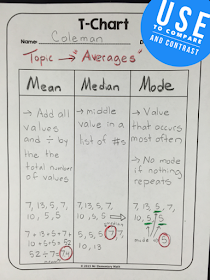 T-Chart
USE
TO COMPARE
AND CONTRAST
Name: Coleman
Topic → "Averages"
Mean
→ Add all
values
and ÷ by
the the
total number
of values
7, 13, 5, 7,
10, 5, 5
7 + 13 + 5 + 7 +
10 + 5 + 5 = 52
52 ÷ 7 = 7.4
Median
→ middle
value in a
list of #s
7, 13, 5, 7,
10, 5, 5
5, 5, 5, 7, 7,
10, 13
Mode
→ Value
that occurs
most often
→ No mode
if nothing
repeats
7, 13, 5, 7,
10, 5, 5
mode = 5